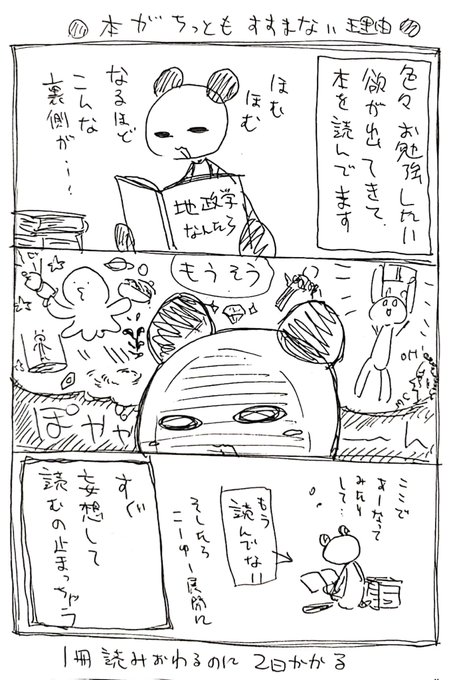 本がちっともすすまない理由
色々お勉強したい
欲が出てきて、
本を読んでます
ほむ
ほむ
なるほど
こんな
裏側が…!
地政学
なんたら
もうそう
OH!
ぽややーん
ここで
あーなって
みたり
して…
もう
読んでない
そしたら
こーゆー展開に
すぐ
妄想して
読むの止まっちゃう
1冊読みおわるのに2日かかる